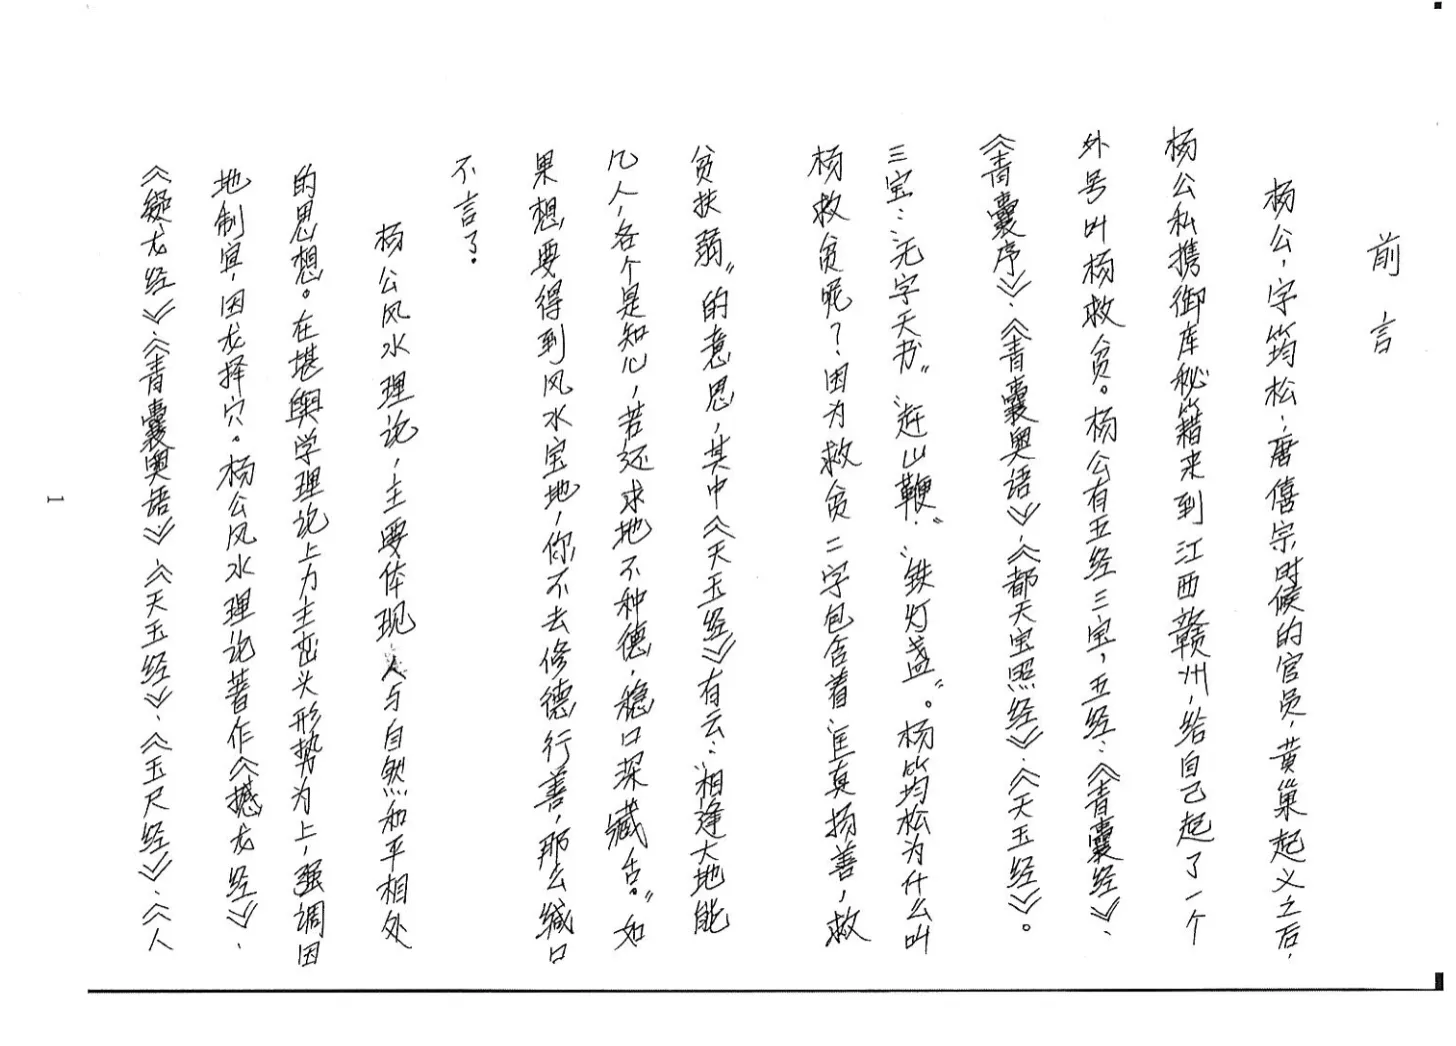 前言
杨公，字筠松，唐僖宗时候的官员，黄巢起义之后，
杨公私携御库秘籍来到江西赣州，给自己起了一个
外号叫杨救贫。杨公有五经三宝，五经：《青囊经》、
《青囊序》、《青囊奥语》、《都天宝照经》、《天玉经》。
三宝：“无字天书”“赶山鞭”“铁灯盏”。杨筠松为什么叫
杨救贫呢？因为救贫二字包含着“匡真扬善，救
贫扶弱”的意思，其中《天玉经》有云：“相逢大地能
几人，各个是知心，若还求地不种德，稳口深藏舌。”如
果想要得到风水宝地，你不去修德行善，那么缄口
不言了。
杨公风水理论，主要体现人与自然和平相处
的思想。在堪舆学理论上力主峦头形势为上，强调因
地制宜，因龙择穴。杨公风水理论著作《撼龙经》、
《疑龙经》《青囊奥语》《天玉经》、《玉尺经》、《人
1